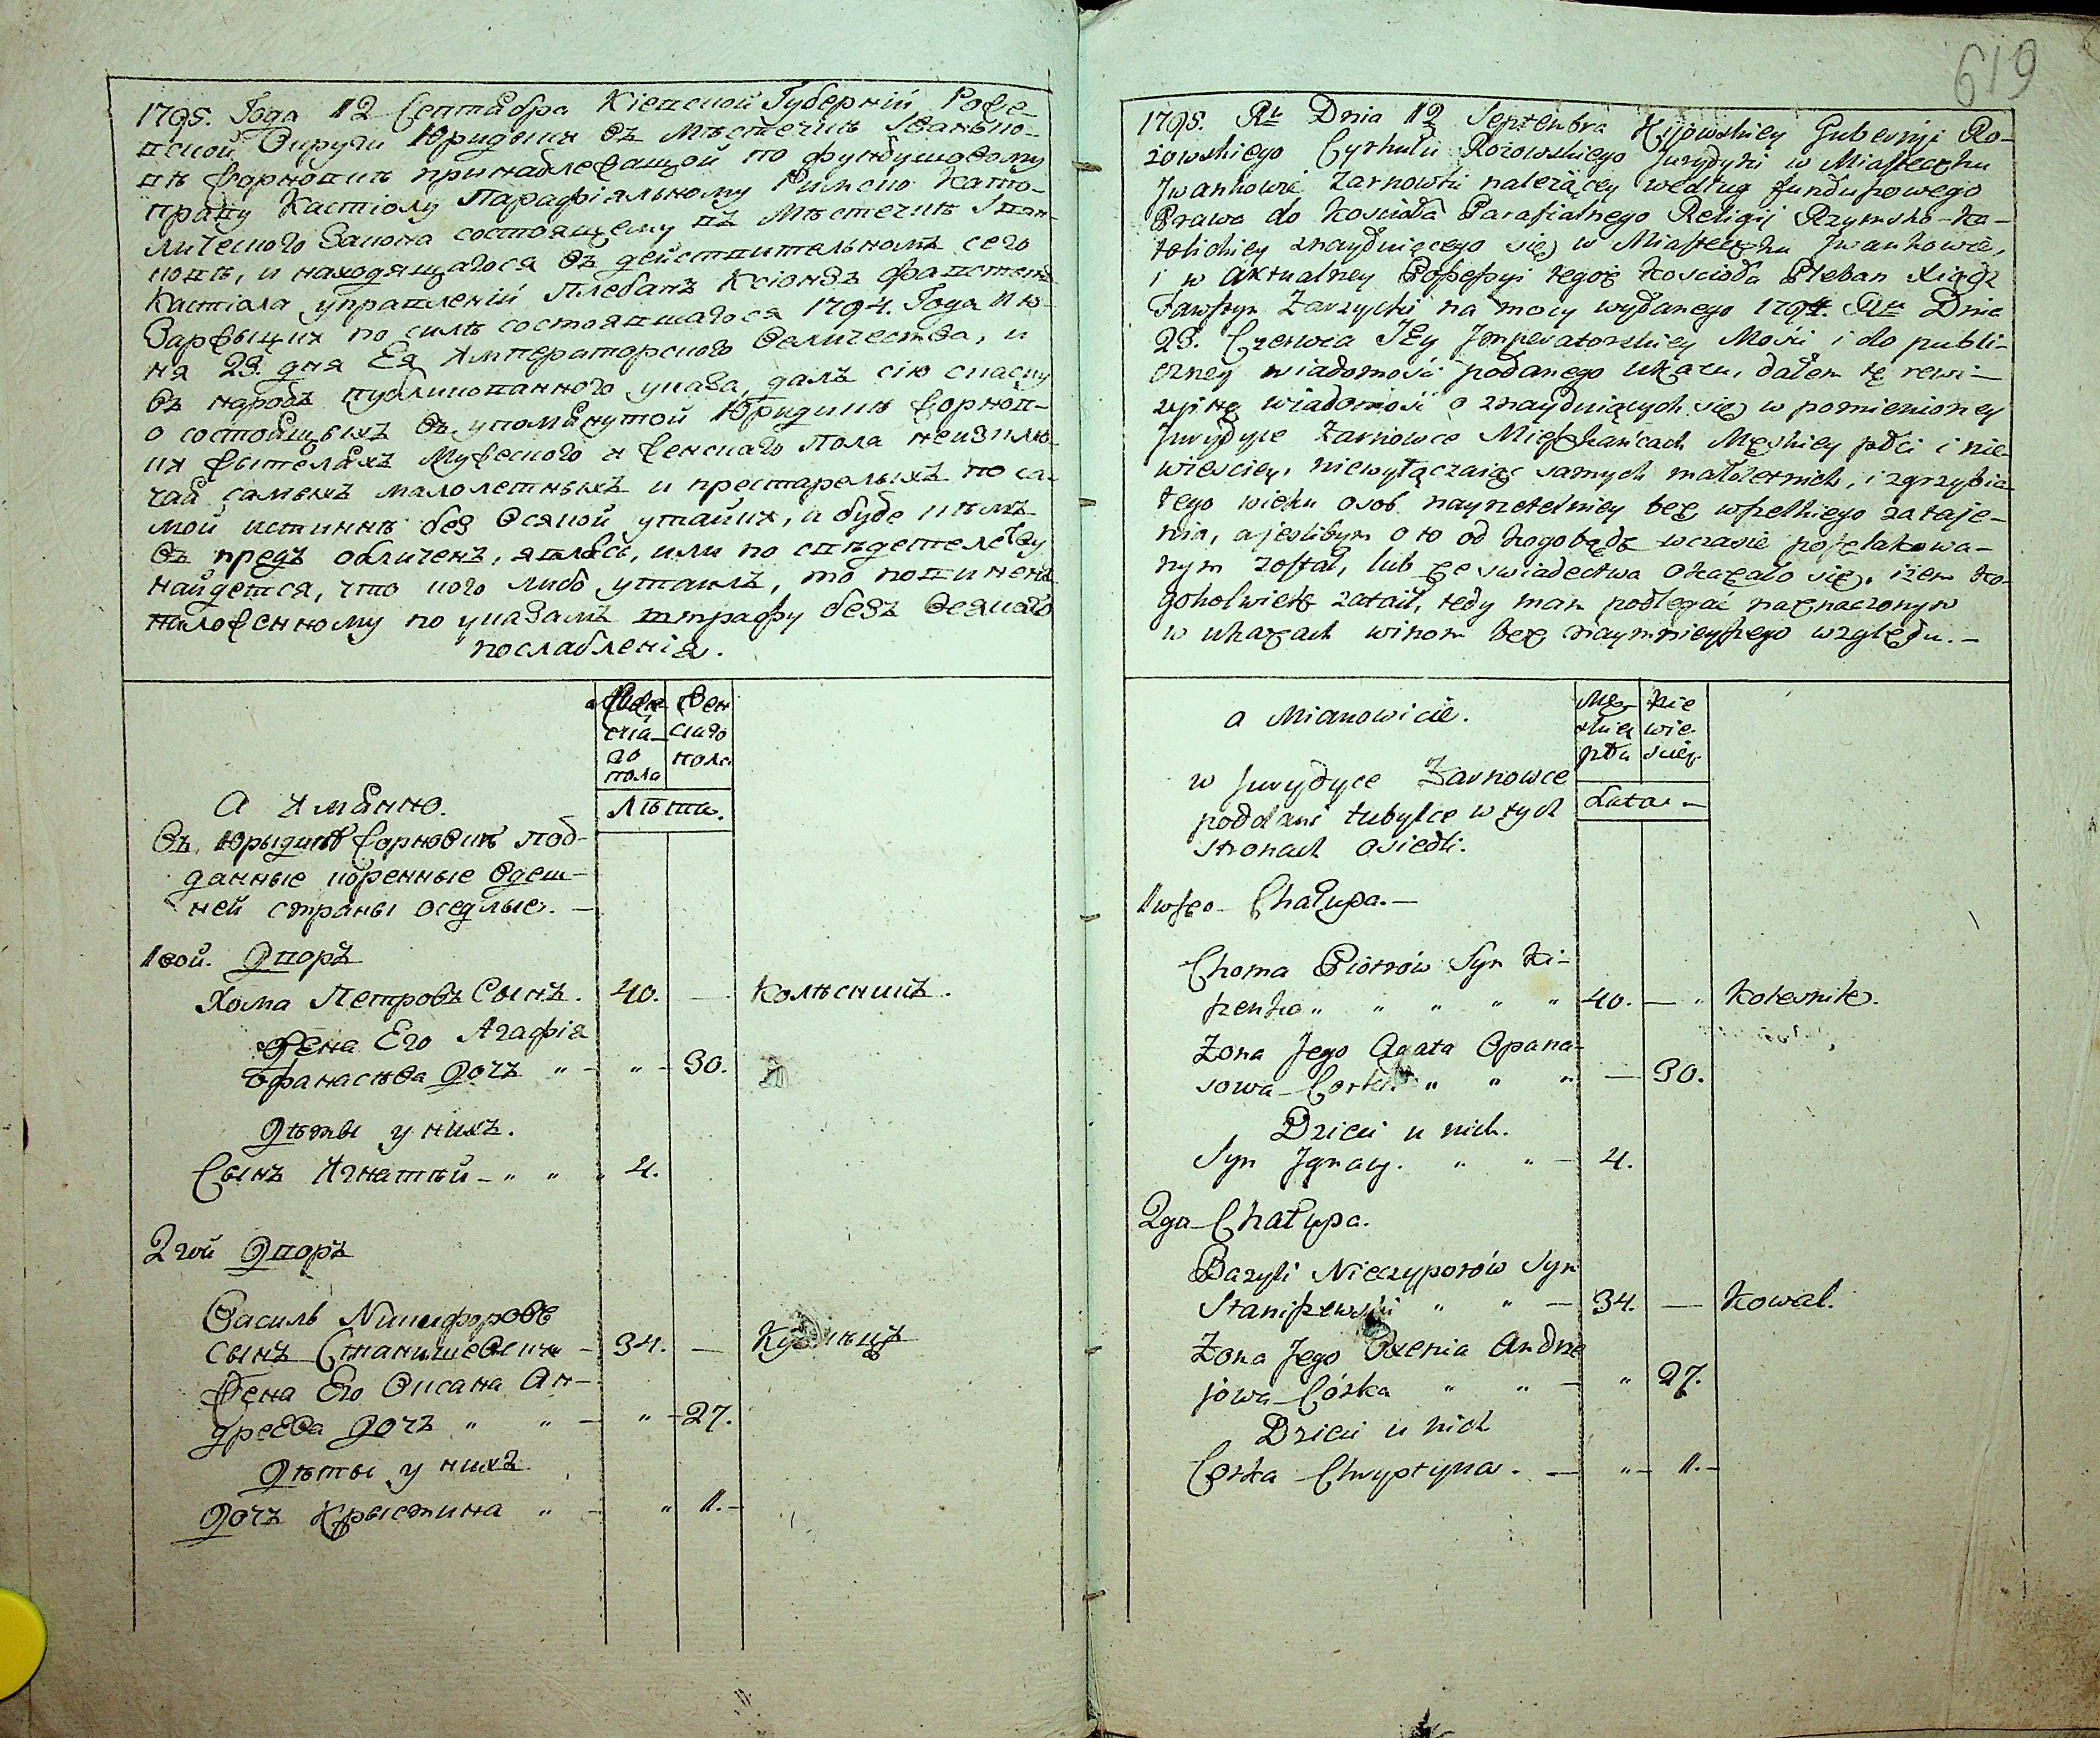 1795. Года 12 Септабра Кіевской Губерній Роже-
вской Округи Юридыки въ Мѣстечкѣ Іванько-
вѣ Жорновкѣ принадлежащой по фундушовому
праву Кастіолу Парафіяльному Римско Като-
лического Закона состоящему въ Мѣстечкѣ Іван-
ковѣ, и находящагося въ действительномъ сего
Кастіола управленій Плебанъ Ксіондзъ Фавстенъ
Заржыцки по силѣ состоявшагося 1794. Года Ию-
ня 23. дня Ея Императорского Величества, и
въ народъ публикованного указа, далъ сію скаску
о состоящыхъ въ упомянутой Юридикѣ Жорнов-
ки жытеляхъ Мужеского и Женскаго пола неизклю-
чай самыхъ малолетныхъ и престарелыхъ по са-
мой истиннѣ без всякой утайки, а буде кѣмъ
въ предъ обличенъ, явлюсь, или по свѣдетелству
найдется, что кого либо утаилъ, то повиненъ
положенному по указамъ штрафу безъ всякаго
послабленія.
Муж- Жен
ска- скаго
го пола
пола
А Имянно. Лѣта.
Въ Юрыдикѣ Жорновкѣ под-
данные коренные здеш-
ней страны оседлые. —
1вой. Дворъ
Хома Петровъ Сынъ. 40. — Колѣсникъ.
Жена Его Агафія
Офанасѣва Дочъ " — " — 30.
Дѣтвы у нихъ.
Сынъ Игнатѣй — " " " 4.
2гой Дворъ
Василь Никифоровъ
Сынъ Станишевски — 34. — Кузнѣцъ
Жена Его Оксана Ан-
дреева Дочъ " " — " — 27.
Дѣты у нихъ
Дочъ Крыстина " — " 1. —
619
1795. Ru Dnia 12 Septembra Kijowskiey Gubernji Ro-
żowskiego Cyrkułu Rożowskiego Jurydyki w Miasteczku
Jwankowie Żarnowki należącey według funduszowego
Prawa do Kościoła Parafialnego Religij Rzymsko-Ka-
tolickiey znayduiącego się w Miasteczku Jwankowie,
i w aktualney Possessyi tegoż Kościoła Pleban Xiądz
Fawstyn Zarzycki na mocy wydanego 1794. Ru Dnia
23. Czerwca JEy Jmperatorskiey Mości i do publi-
czney wiadomości podanego Ukazu, dałem tę rewi-
zyiną wiadomość o znayduiących się w pomienioney
Jurydyce Żarnowce Mieszkańcach Męskiey płci i nie-
wieściey, niewyłączaiąc samych małoletnich, i zgrzybia-
łego wieku osob nayrzetelniey bez wszelkiego zataje-
nia, a jeslibym o to od kogo bądź w czasie poszlakowa-
nym został, lub ze swiadectwa okazało się, iżem ko-
gokolwiek zataił, tedy mam podlegać naznaczonym
w ukazach winom bez naymnieyszego względu. —
a Mianowicie. Mę- Nie
skiey wie-
płci sciey
w Jurydyce Żarnowce Lata —
poddani tubylce w tych
stronach osiedli.
1wsza Chałupa. —
Choma Piotrów Syn Ki-
szenko " " " " " 40. — " Kołesnik.
Żona Jego Agata Opana-
sowa Corka " " " — 30.
Dzieci u nich.
Syn Jgnacy. " " — 4.
2ga Chałupa.
Bazyli Nieczyporów Syn
Staniszewski " " — 34. — Kowal.
Żona Jego Oxenia Andrze
jowa Córka " " — " 27.
Dzieci u nich
Corka Chryptyna. — " — 1. —